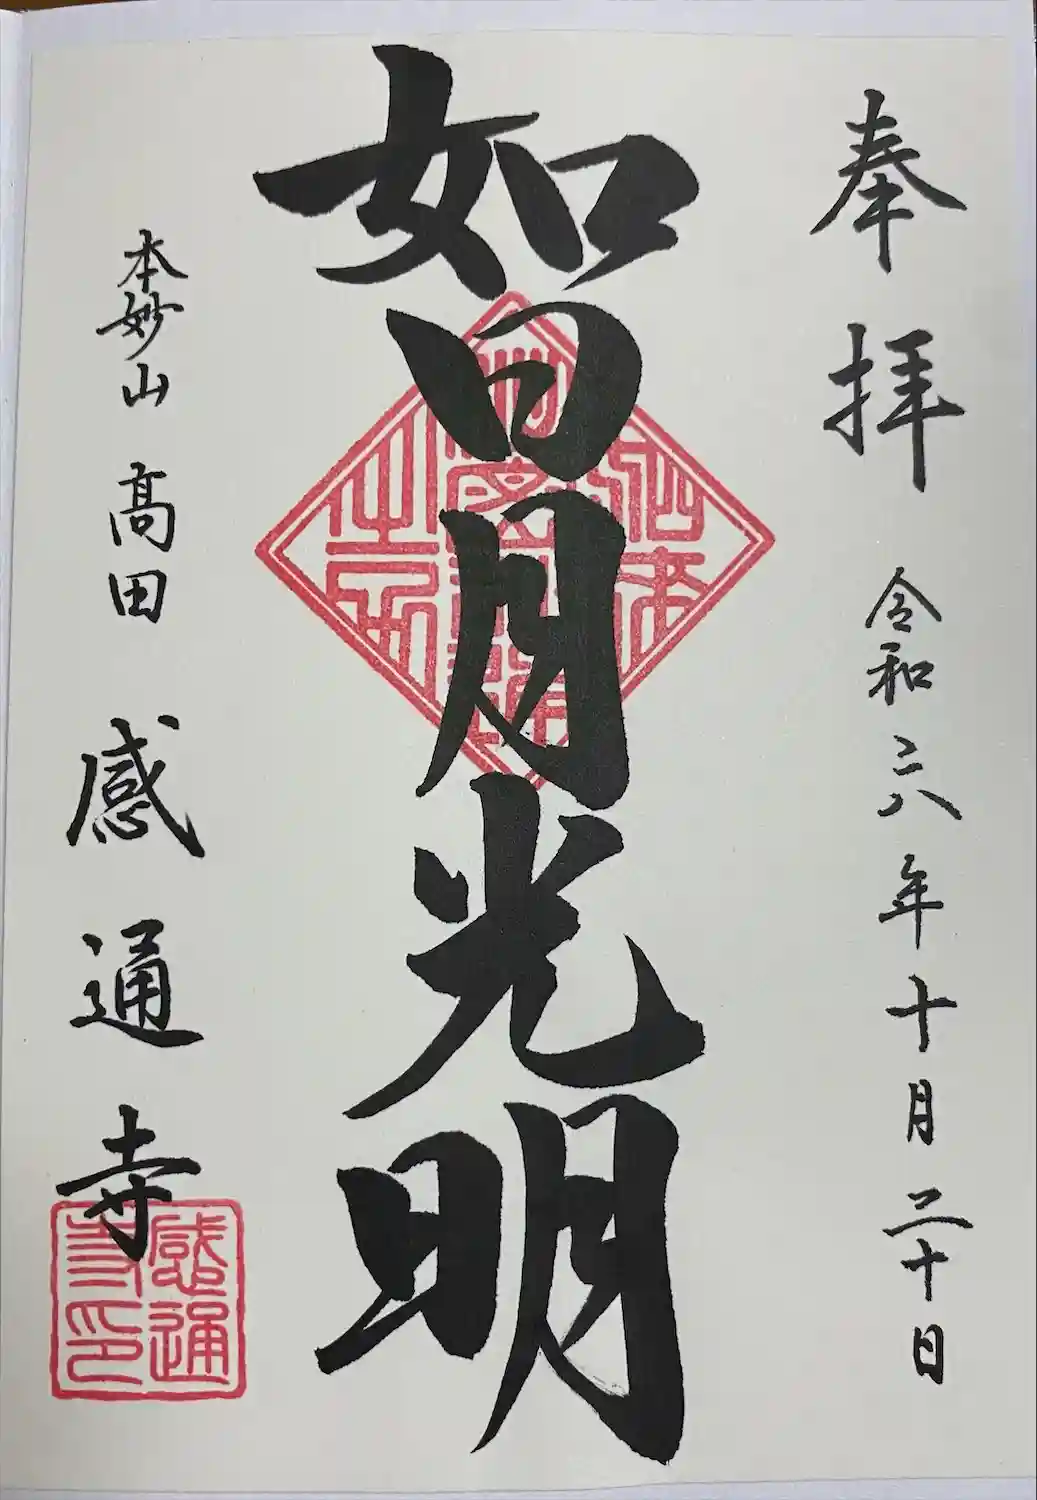 奉拝 令和六年十月二十日
如日月光明
本妙山 髙田 感通寺
感通寺印